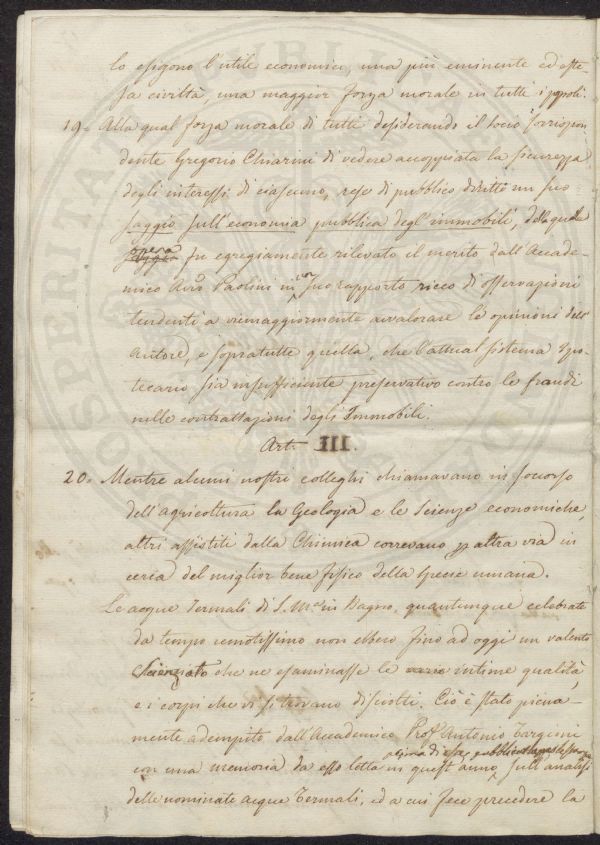 lo esigono l'utile economico, una più eminente ed este-
sa civiltà, una maggior forza morale in tutti i popoli.
19. Alla qual forza morale di tutti desiderando il socio corrispon
dente Gregorio Chiarini di vedere accoppiata la sicurezza
degli interessi di ciascuno, rese di pubblico diritto un suo
saggio sull'economia pubblica degl'immobili, della quale
opera
saggio fu egregiamente rilevato il merito dall'Accade-
mico Avv.º Paolini in con suo rapporto ricco di osservazioni
tendenti a viemaggiormente avvalorare le opinioni dell'
Autore, e sopratutto quella, che l'attual sistema Ipo-
tecario sia insufficiente preservativo contro le fraudi
nelle contrattazioni degli Immobili.
Art. III.
20. Mentre alcuni nostri colleghi chiamavano in soccorso
dell'agricoltura la Geologia e le Scienze economiche,
altri assistiti dalla Chimica correvano p altra via in
cerca del miglior bene fisico della specie umana.
Le acque Termali di S. M.ª in Bagno, quantunque celebrate
da tempo remotissimo non ebbero fino ad oggi un valente
Scienziato che ne esaminasse le varie intime qualità,
e i corpi che vi si trovano disciolti. Ciò è stato piena-
mente adempito dall'Accademico Prof. Antonio Targioni
con una memoria da esso letta in quest'anno, sull'analisi
delle nominate acque Termali, ed a cui fece precedere la